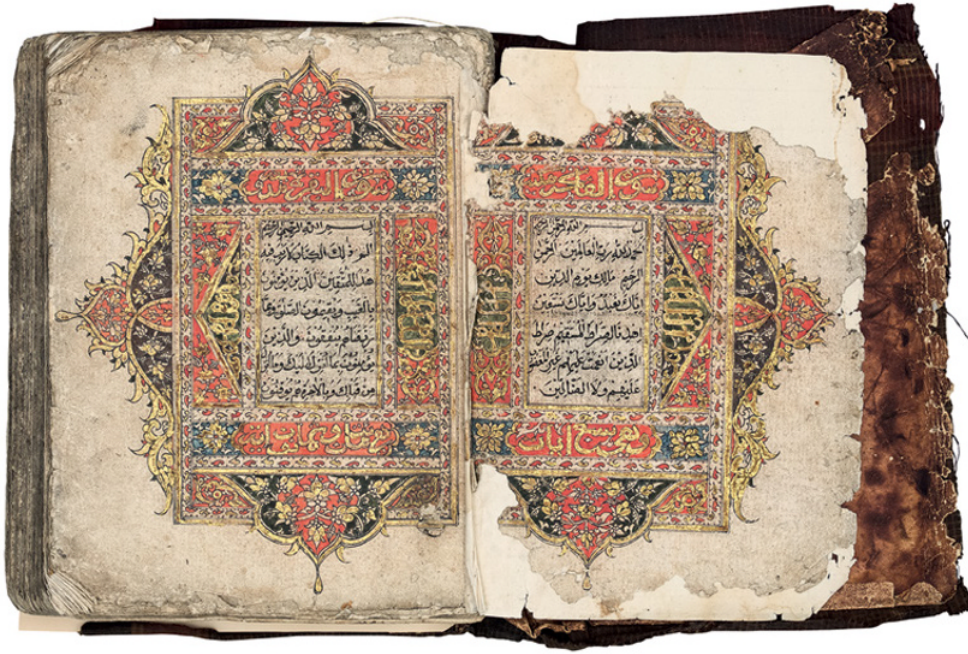 سورة الفاتحة
بسم الله الرحمن الرحيم
حمد لله رب العالمين الرحمن
الرحيم مالك يوم الدين
اياك نعبد واياك نستعين
اهدنا الصراط المستقيم صراط
الذين انعمت عليهم غير المغضوب
عليهم ولا الضالين
وهي سبع ايات
سورة البقرة
بسم الله الرحمن الرحيم
الم ذلك الكتاب لا ريب فيه
هدى للمتقين الذين يؤمنون
بالغيب ويقيمون الصلوة ومما
رزقناهم ينفقون والذين
يؤمنون بما انزل اليك وما انزل
من قبلك وبالاخرة هم يوقنون